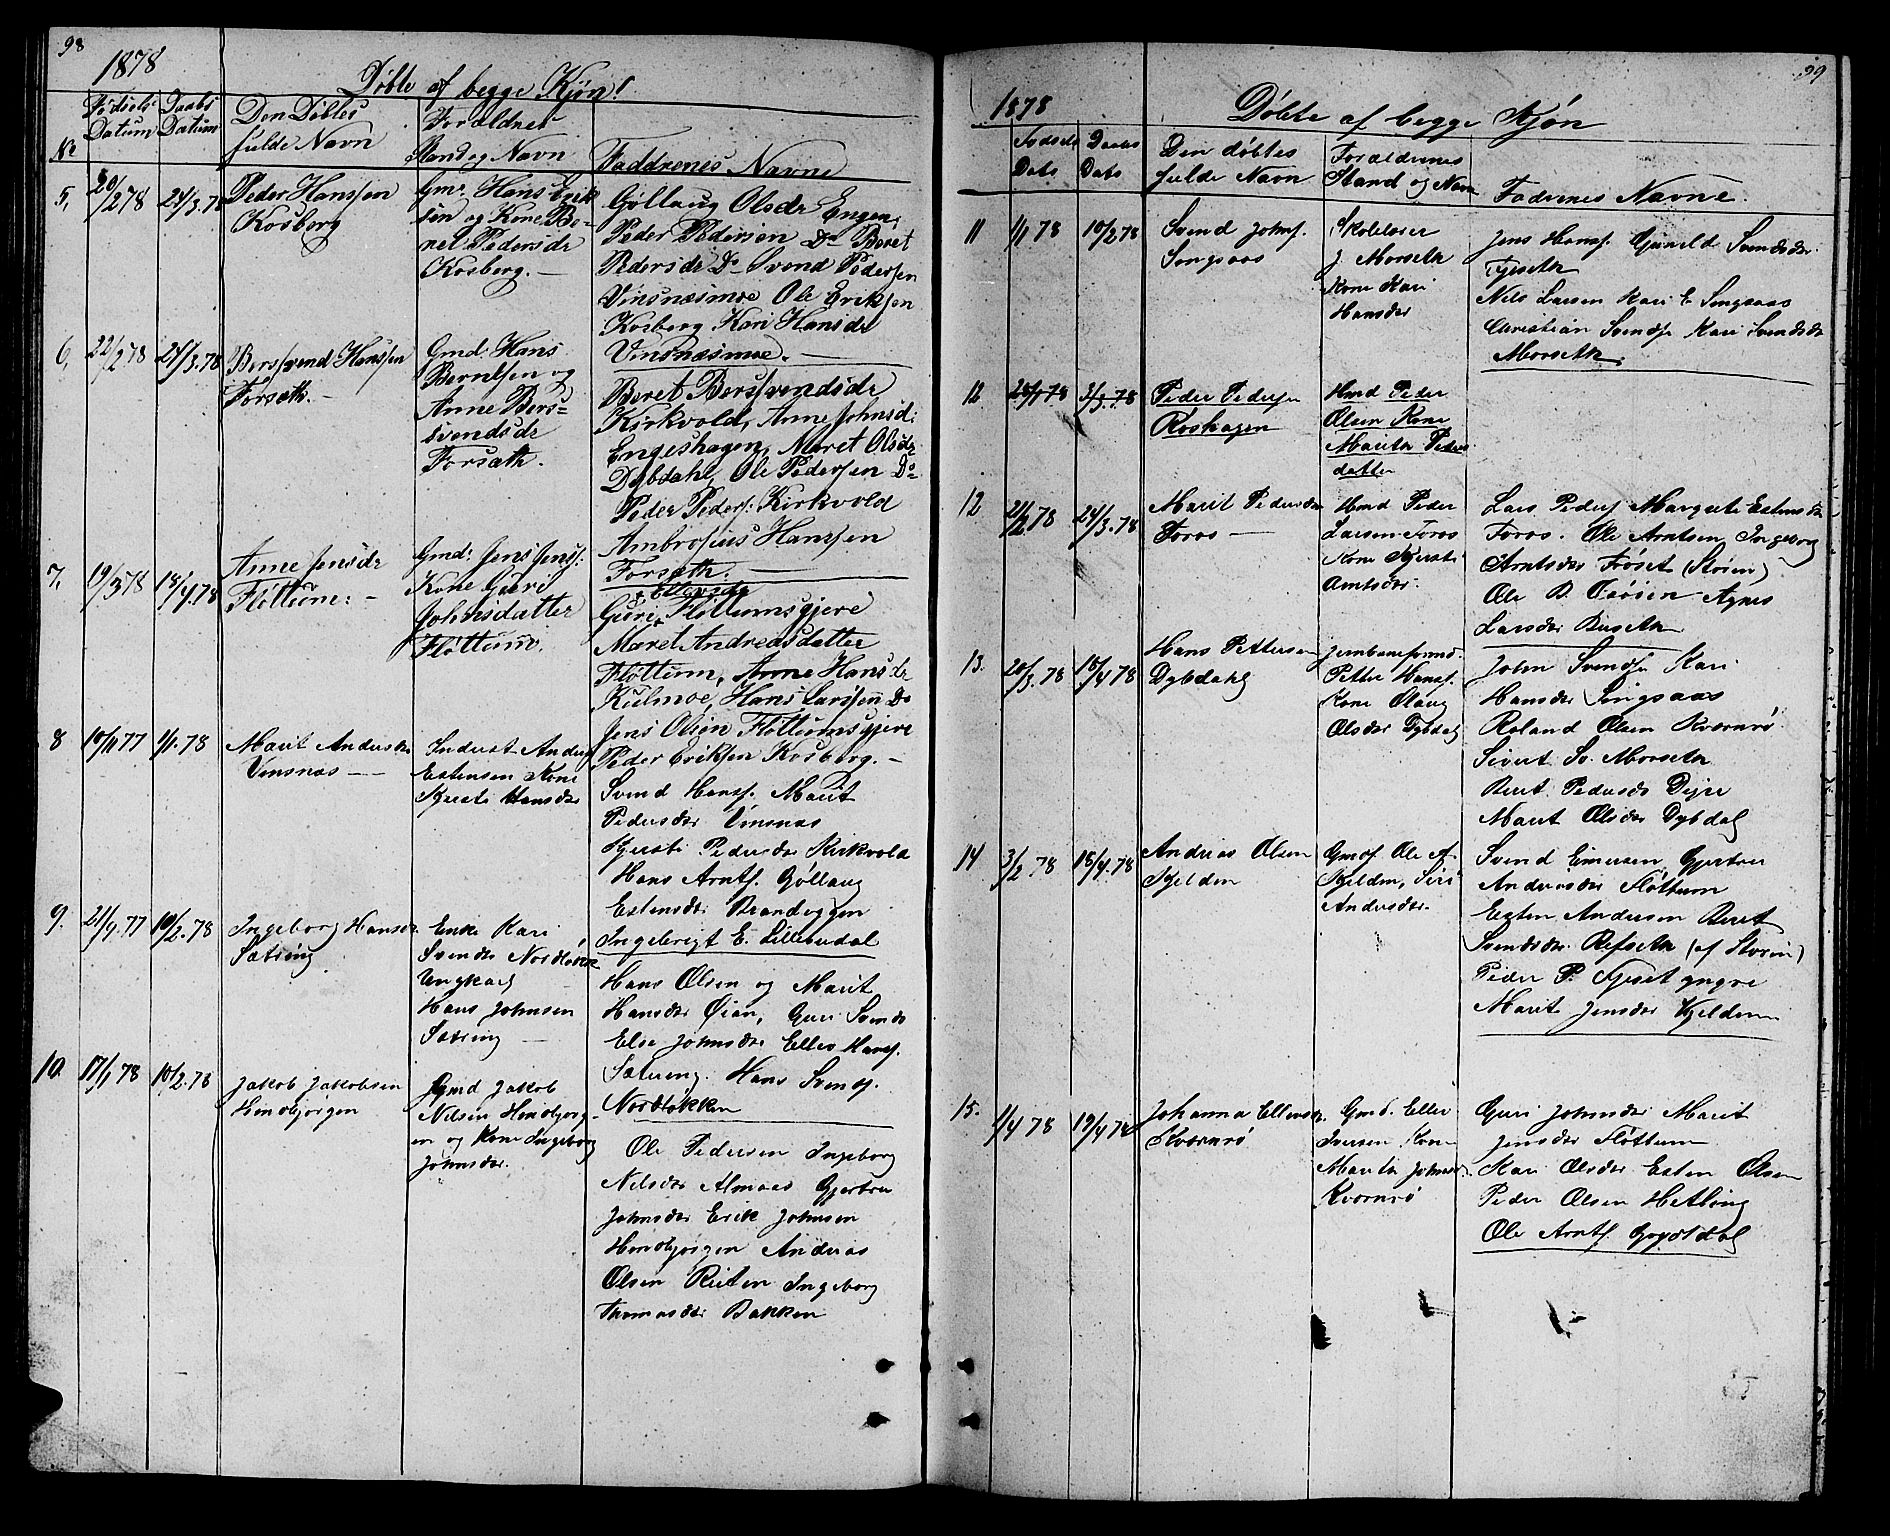 98
1878
Døbte af begge Kjøn!
No
Fødsels Datum
Daabs Datum
Den Døbtes fulde Navn
Forældres Stand og Navn
Faddrenes Navne
5, 20/2 78 24/3. 78
Peder Hanssen
Kosberg
Gmd. Hans Erik
sen og Kone Be-
ret Pedersdr
Kosberg. -
Gøllaug Olsdr Engen,
Peder Pedersen Do Beret
Pedersdr Do Svend Pedersen
Vinsnæsmoe Ole Eriksen
Kosberg Kari Hansdr
Vinsnæsmoe. -
6, 22/2 78 24/3. 78
Bersvend Hanssen
Forsæth. -
Gmd. Hans
Berntsen og
Anne Bers=
svendsdr
Forsæth.
Beret Bersvendsdr
Kirkvold, Anne Johnsd:
Engeshagen, Maret Olsdr
Dybdahl, Ole Pedersen Do
Peder Peders: Kirkvold
Ambrosius Hanssen
Forsæth. -
7, 19/3 78 18/4. 78
Anne Jensdr
Fløttum: -
Gmd: Jens Jens:
Kone Guri
Johnsdatter
Fløttum.
Ellevsdr
Guri Fløttumsgjere
Maret Andreasdatter
Fløttum, Anne Hansdr
Kulmoe, Hans Larssen Do
Jens Olsen Fløttumsgjere
Peder Eriksen Kosberg. -
8 10/11 77 1/1. 78
Marit Andersdr
Vinsnæs -
Inderst Anders
Estensen Kone
Kjersti Hansdr
Svend Hansf. Marit
Pedersdr Vinsnæs
Kjersti Pedersdr Kirkvold
Hans Arntf. Gøllaug
Estensdr Brandeggen
Ingebrigt E. Lilleødal
9. 21/9. 77 10/2. 78
Ingeborg Hansdr
Sætring
Enke Kari
Svendsdr Nordløkk
Ungkarl
Hans Johnsen
Sætring -
Hans Olsen og Marit
Hansdr Øian, Guri Svends
Else Johnsdr Ellev Hansf.
Sætering. Hans Svendf.
Nordløkken
10. 17/1 78 10/2. 78
Jakob Jakobsen
Hindbjørgen
Gmd Jakob
Nilsen Hindbjørg-
en og Kone Ingeborg
Johnsdr.
Ole Pedersen Ingeborg
Nilsdr Almaas Gjertru
Johnsdr Erik Johnsen
Hindbjørgen Andreas
Olsen Reiten Ingeborg
Thomasdr Bakken
99
1878
Døbte af begge Kjøn
Fødsels Dato
Daabs Dato
Den døbtes fulde Navn
Forældrenes Stand og Navn
Fadrenes Navne.
11 1/1 78 10/2 78
Svend Johnf.
Singsaas
Skolelærer
J. Morseth
Kone Kari
Hansdr
Jens Hansf. Gunild Svendsdr
Fjeseth
Nils Larsen Kari E. Singsaas
Christian Svendf. Kari Svendsdr
Morseth.
12 3/3. 78
Peder Pedersen
Roshagen
Hmd Peder
Olsen Kone
Marith Peders
datter
12 21/2 78 24/3. 78
Marit Pedersdr
Foros -
Hmd Peder
Larsen Foros
Kone Kjersti
Arntsdr.
Lars Pederf Margrete Estensdr
Foros. Ole Arntsen, Ingeborg
Arntsdr Frøset (Støren)
Ole B. Agnes
Larsdr Buseth
13. 20/3. 78 18/4 78
Hans Pettersen
Dybdahl
Petter Hansf.
Kone Olaug
Olsdr Dybdal
John Svendf. Kari
Hansdr Singsaas
Roland Olsen Kværnrø
Sivert Sv. Morseth
Beret Pedersdr Digre
Marit Olsdr Dybdal
14 3/2 78 18/4. 78
Andreas Olsen
Kjelden
Gmdf. Ole A.
Kjelden, Siri
Andersdr.
Svend Einersen, Gjertru
Andersdr Fløttum
Esten Andersen Beret
Svendsdr Refseth (af Støren)
Peder P. Fjeset yngre
Marit Jensdr Kjelden
15. 1/4 78 19/4 78
Johanna Ellevsdr.
Kværnrø
Gmd. Ellev
Iversen Kone
Marith Johnsdr
Kværnrø
Guri Johnsdr Marit
Jensdr Fløttum
Kari Olsdr Esten Olsen
Peder Olsen Hetling
Ole Arntf. Grytdal